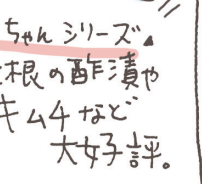 ちゃん シリーズ
根の酢漬や
キムチなど
大好評。